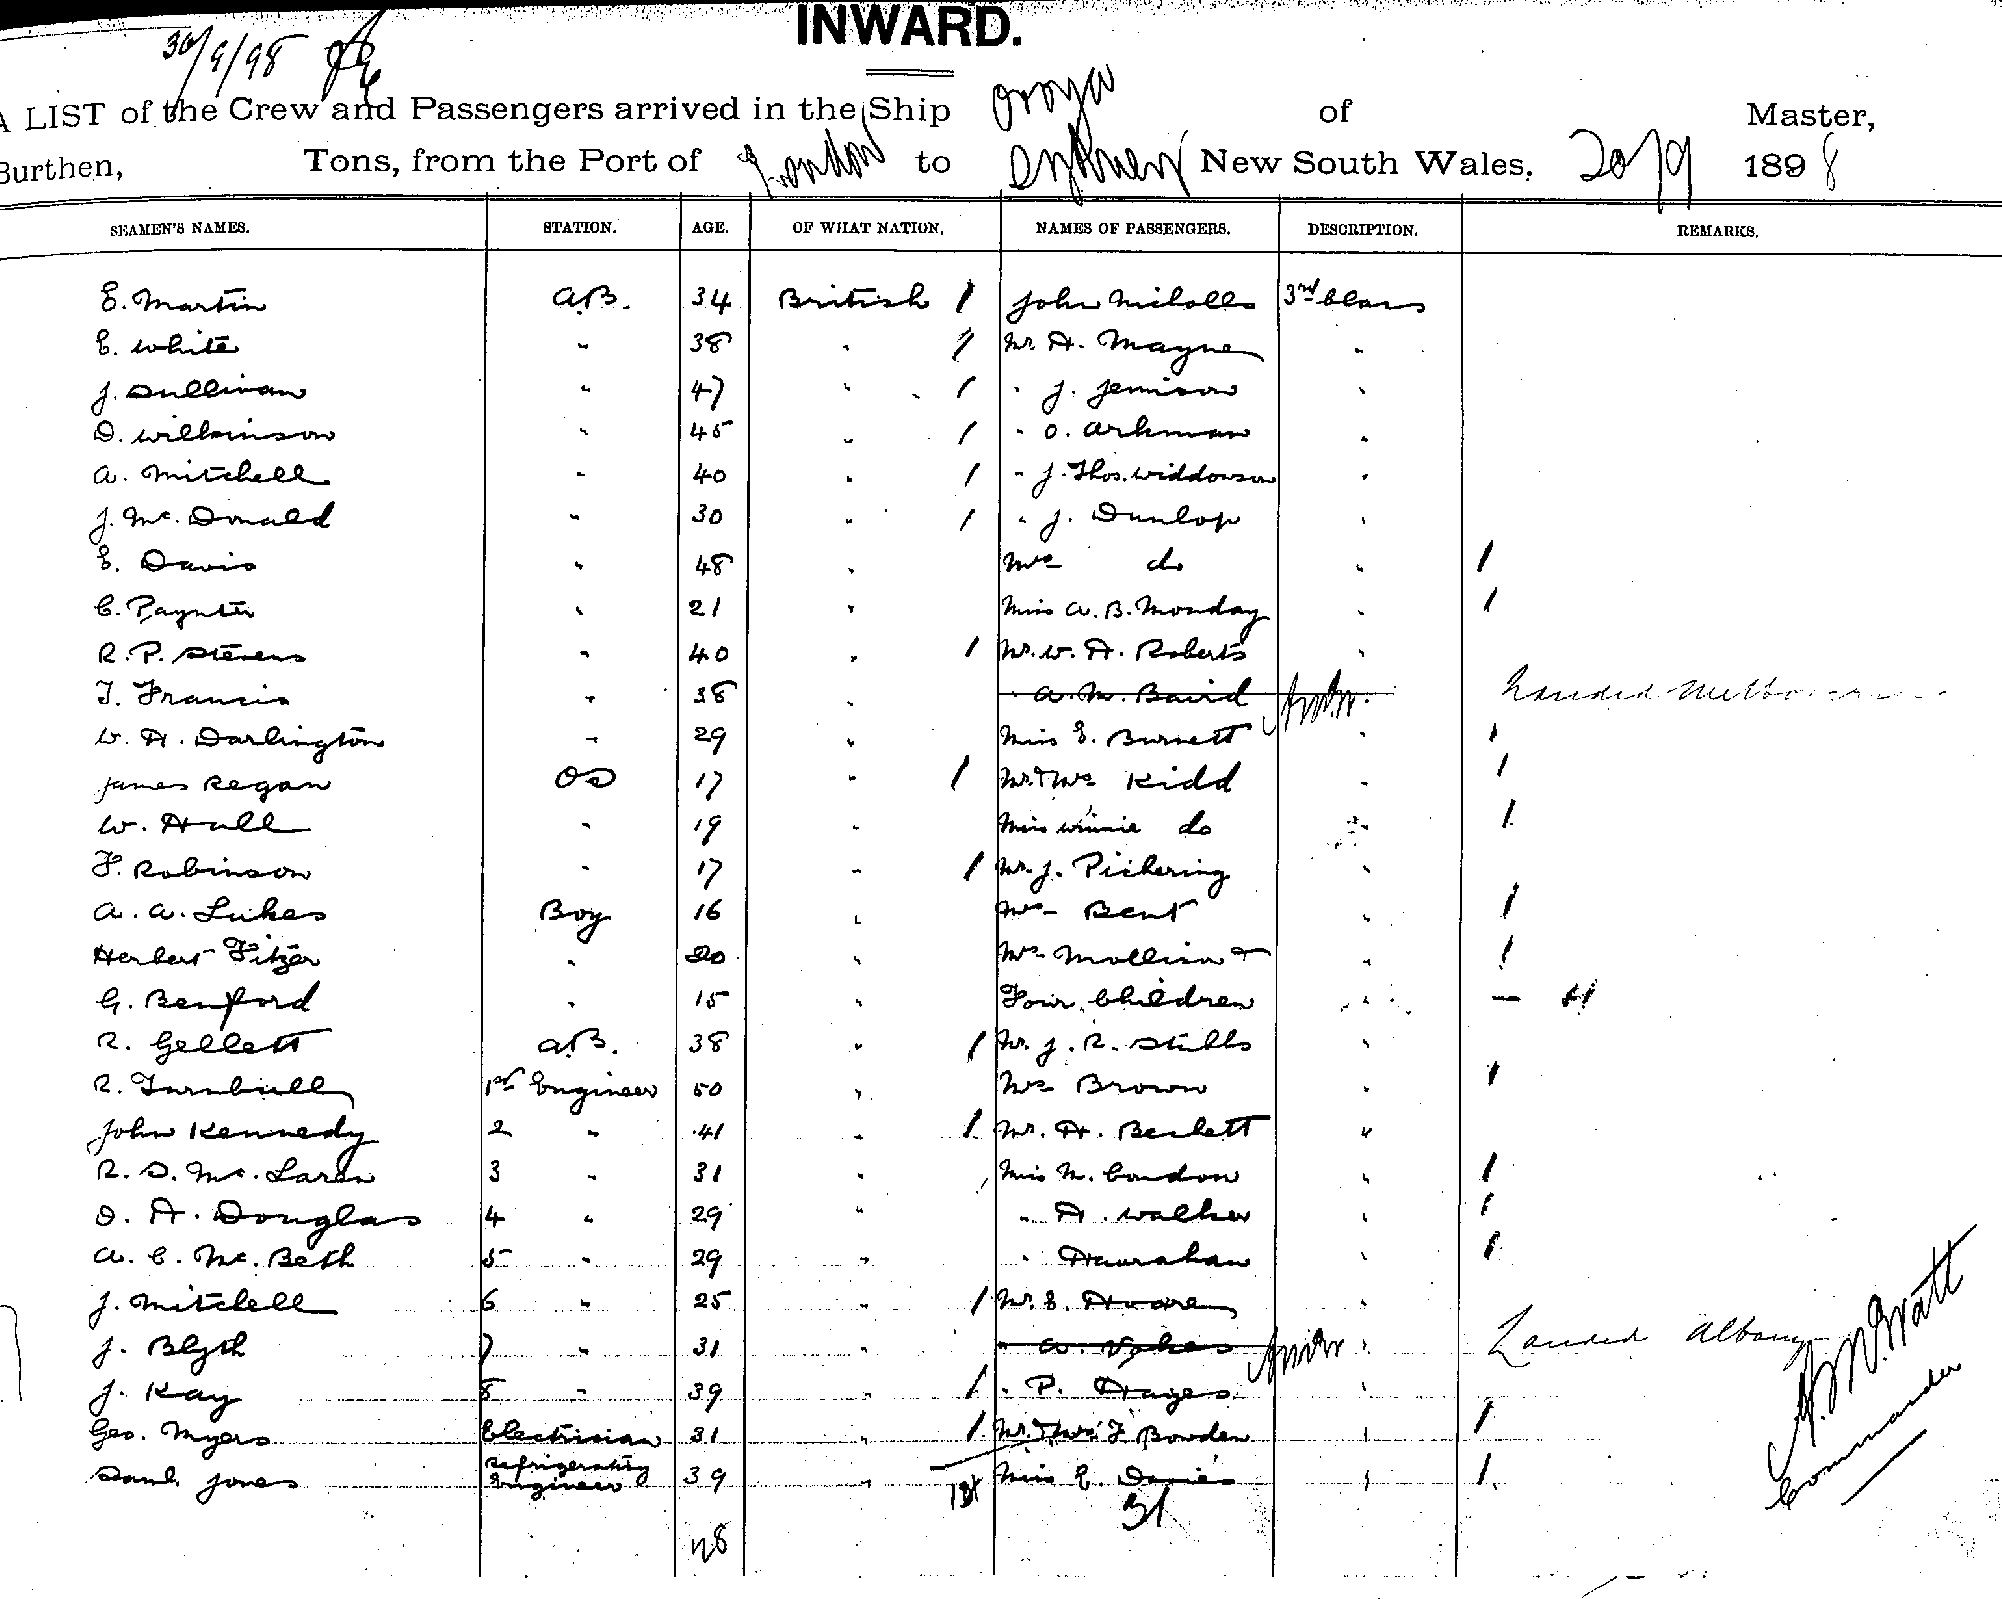 INWARD.
30/9/98
A LIST of the Crew and Passengers arrived in the Ship Oroya of Master,
Burthen, Tons, from the Port of London to Sydney New South Wales, 20/9 1898
SEAMEN'S NAMES. STATION. AGE. OF WHAT NATION. NAMES OF PASSENGERS. DESCRIPTION. REMARKS.
E. Martin A.B. 34 British 1 John Nicholls 3rd Class
E. White " 38 " 1 Mr. H. Mayne "
J. Sullivan " 47 " 1 " J. Jemison "
D. Wilkinson " 45 " 1 " O. Arkman "
A. Mitchell " 40 " 1 " J. Thos. Widdowson "
J. Mc. Donald " 30 " 1 " J. Dunlop "
E. Davis " 48 " Mrs do " 1
C. Paynter " 21 " Miss A. B. Monday " 1
R. P. Stevens " 40 " 1 Mr. W. H. Roberts "
T. Francis " 38 " " A. M. Baird Landed Melbourne
W. H. Darlington " 29 " Miss E. Burnett " 1
James Regan OS 17 " 1 Mr. & Mrs Kidd " 1
W. Hall " 19 " Miss Winnie do " 1
F. Robinson " 17 " 1 Mr. J. Pickering "
A. A. Lukes Boy 16 " Mrs Bent " 1
Herbert Fitzer " 20 " Mrs Mollison & " 1
G. Benford " 15 " Four Children " — 4
R. Gellett A.B. 38 " 1 Mr. J. R. Stubbs "
R. Turnbull 1st Engineer 50 " Mrs Brown " 1
John Kennedy 2 " 41 " 1 Mr. H. Berlett "
R. D. Mc. Laren 3 " 31 " Miss M. Condon " 1
D. H. Douglas 4 " 29 " " H. Walker " 1
A. C. Mc. Beth 5 " 29 " " Hanrahan " 1
J. Mitchell 6 " 25 " 1 Mr. E. Hoare "
J. Blyth 7 " 31 " " A. Vykes " Landed Albany
J. Kay 8 " 39 " 1 " P. Hayes "
Geo. Myers Electrician 31 " 1 Mr. & Mrs F Bowden " 1
Saml. Jones Refrigerating Engineer 39 " Miss E. Davies " 1
28 31
Commander